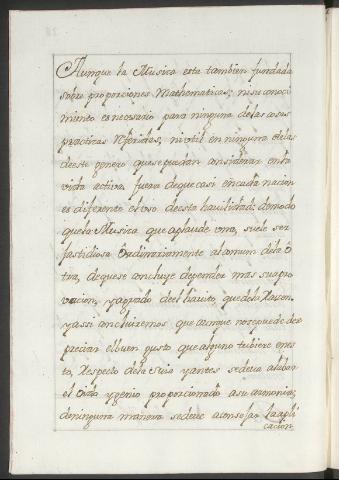 Aunque la Musica esta tambien fundada
sobre proporciones Mathematicas; ni su conoci
miento es necesario para ninguna de las cosas
practicas referidas, ni vtil en ninguna otra
de este genero que se puedan considerar en la
vida activa, fuera de que casi en cada nacion
es diferente el vso de esta havilidad: de modo
que la Musica que aplaude vna, suele ser
fastidiosa ordinariamente al comun de la o
tra, de que se concluye depender mas su apro
vacion, y agrado del havito, que de la Razon.
y assi concluiremos, que aunque no se puede des
preciar el buen gusto, que alguno tubiere en es
to, Respecto de la suia y antes se deva alabar
el oido y genio proporcionado a su armonia;
de ninguna manera se deve aconsejar la apli
cacion